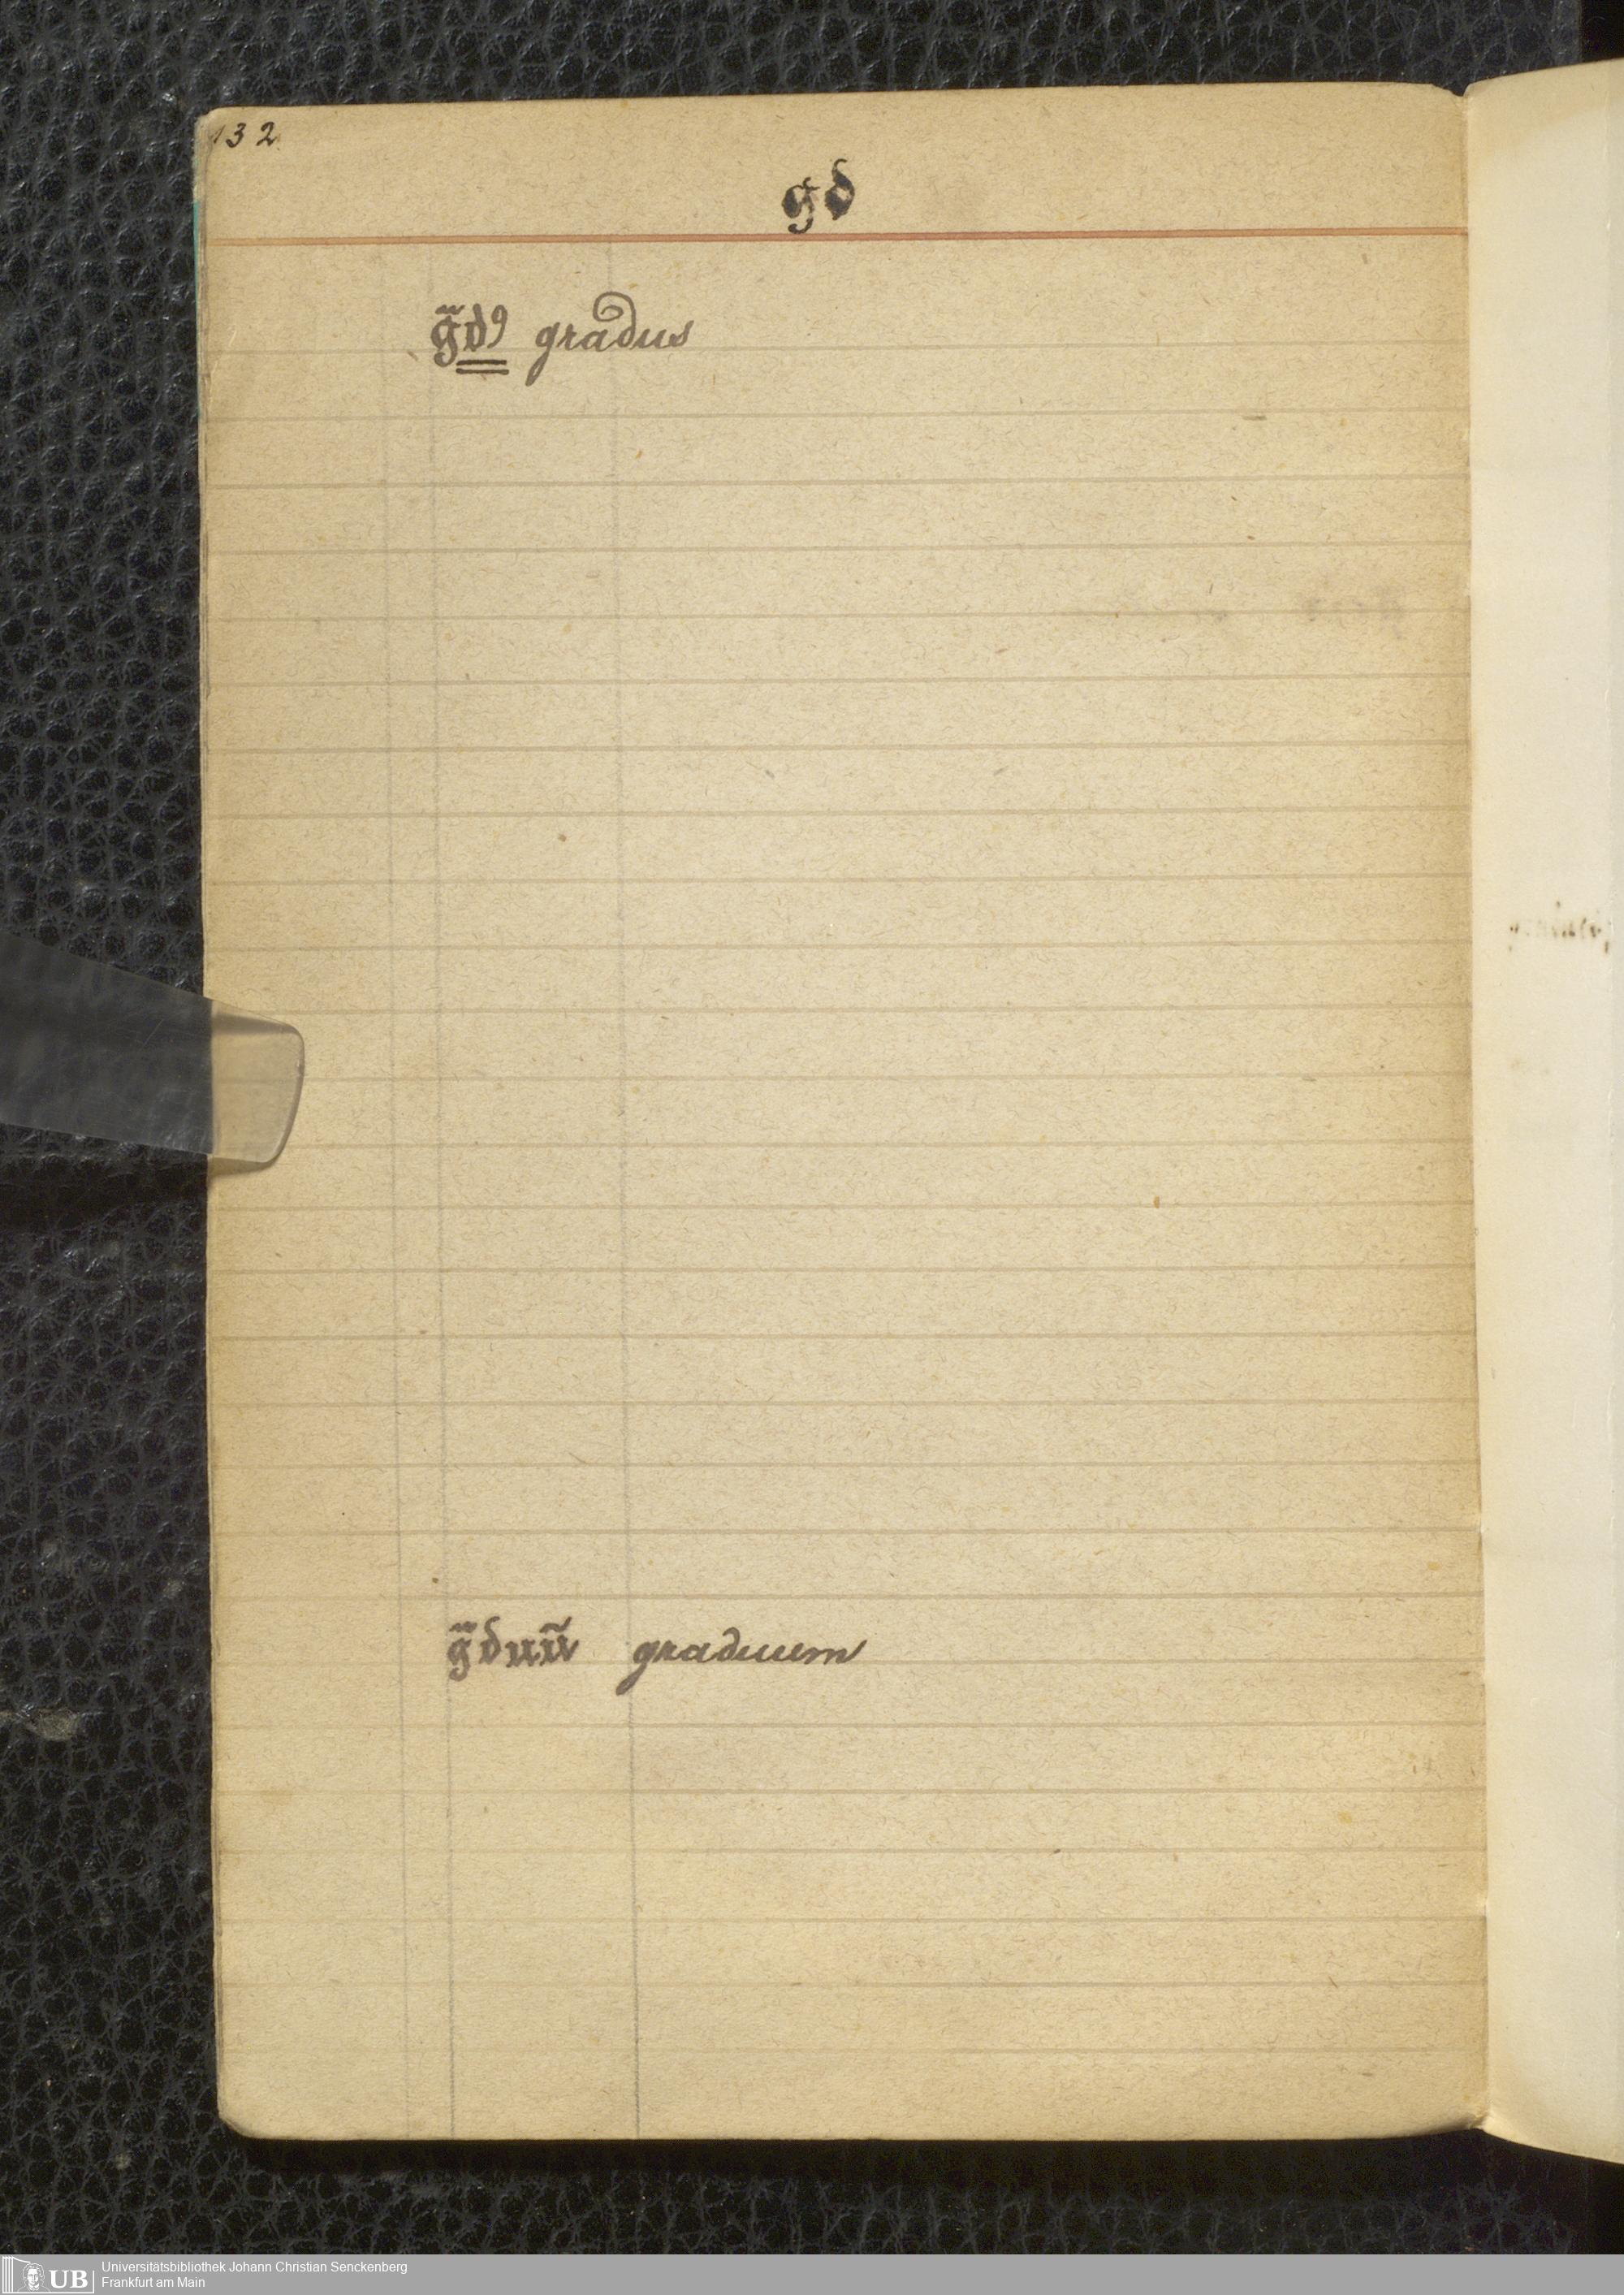 132
gd
g̃dꝰ gradus
g̃duũ graduum
UB Universitätsbibliothek Johann Christian Senckenberg
Frankfurt am Main